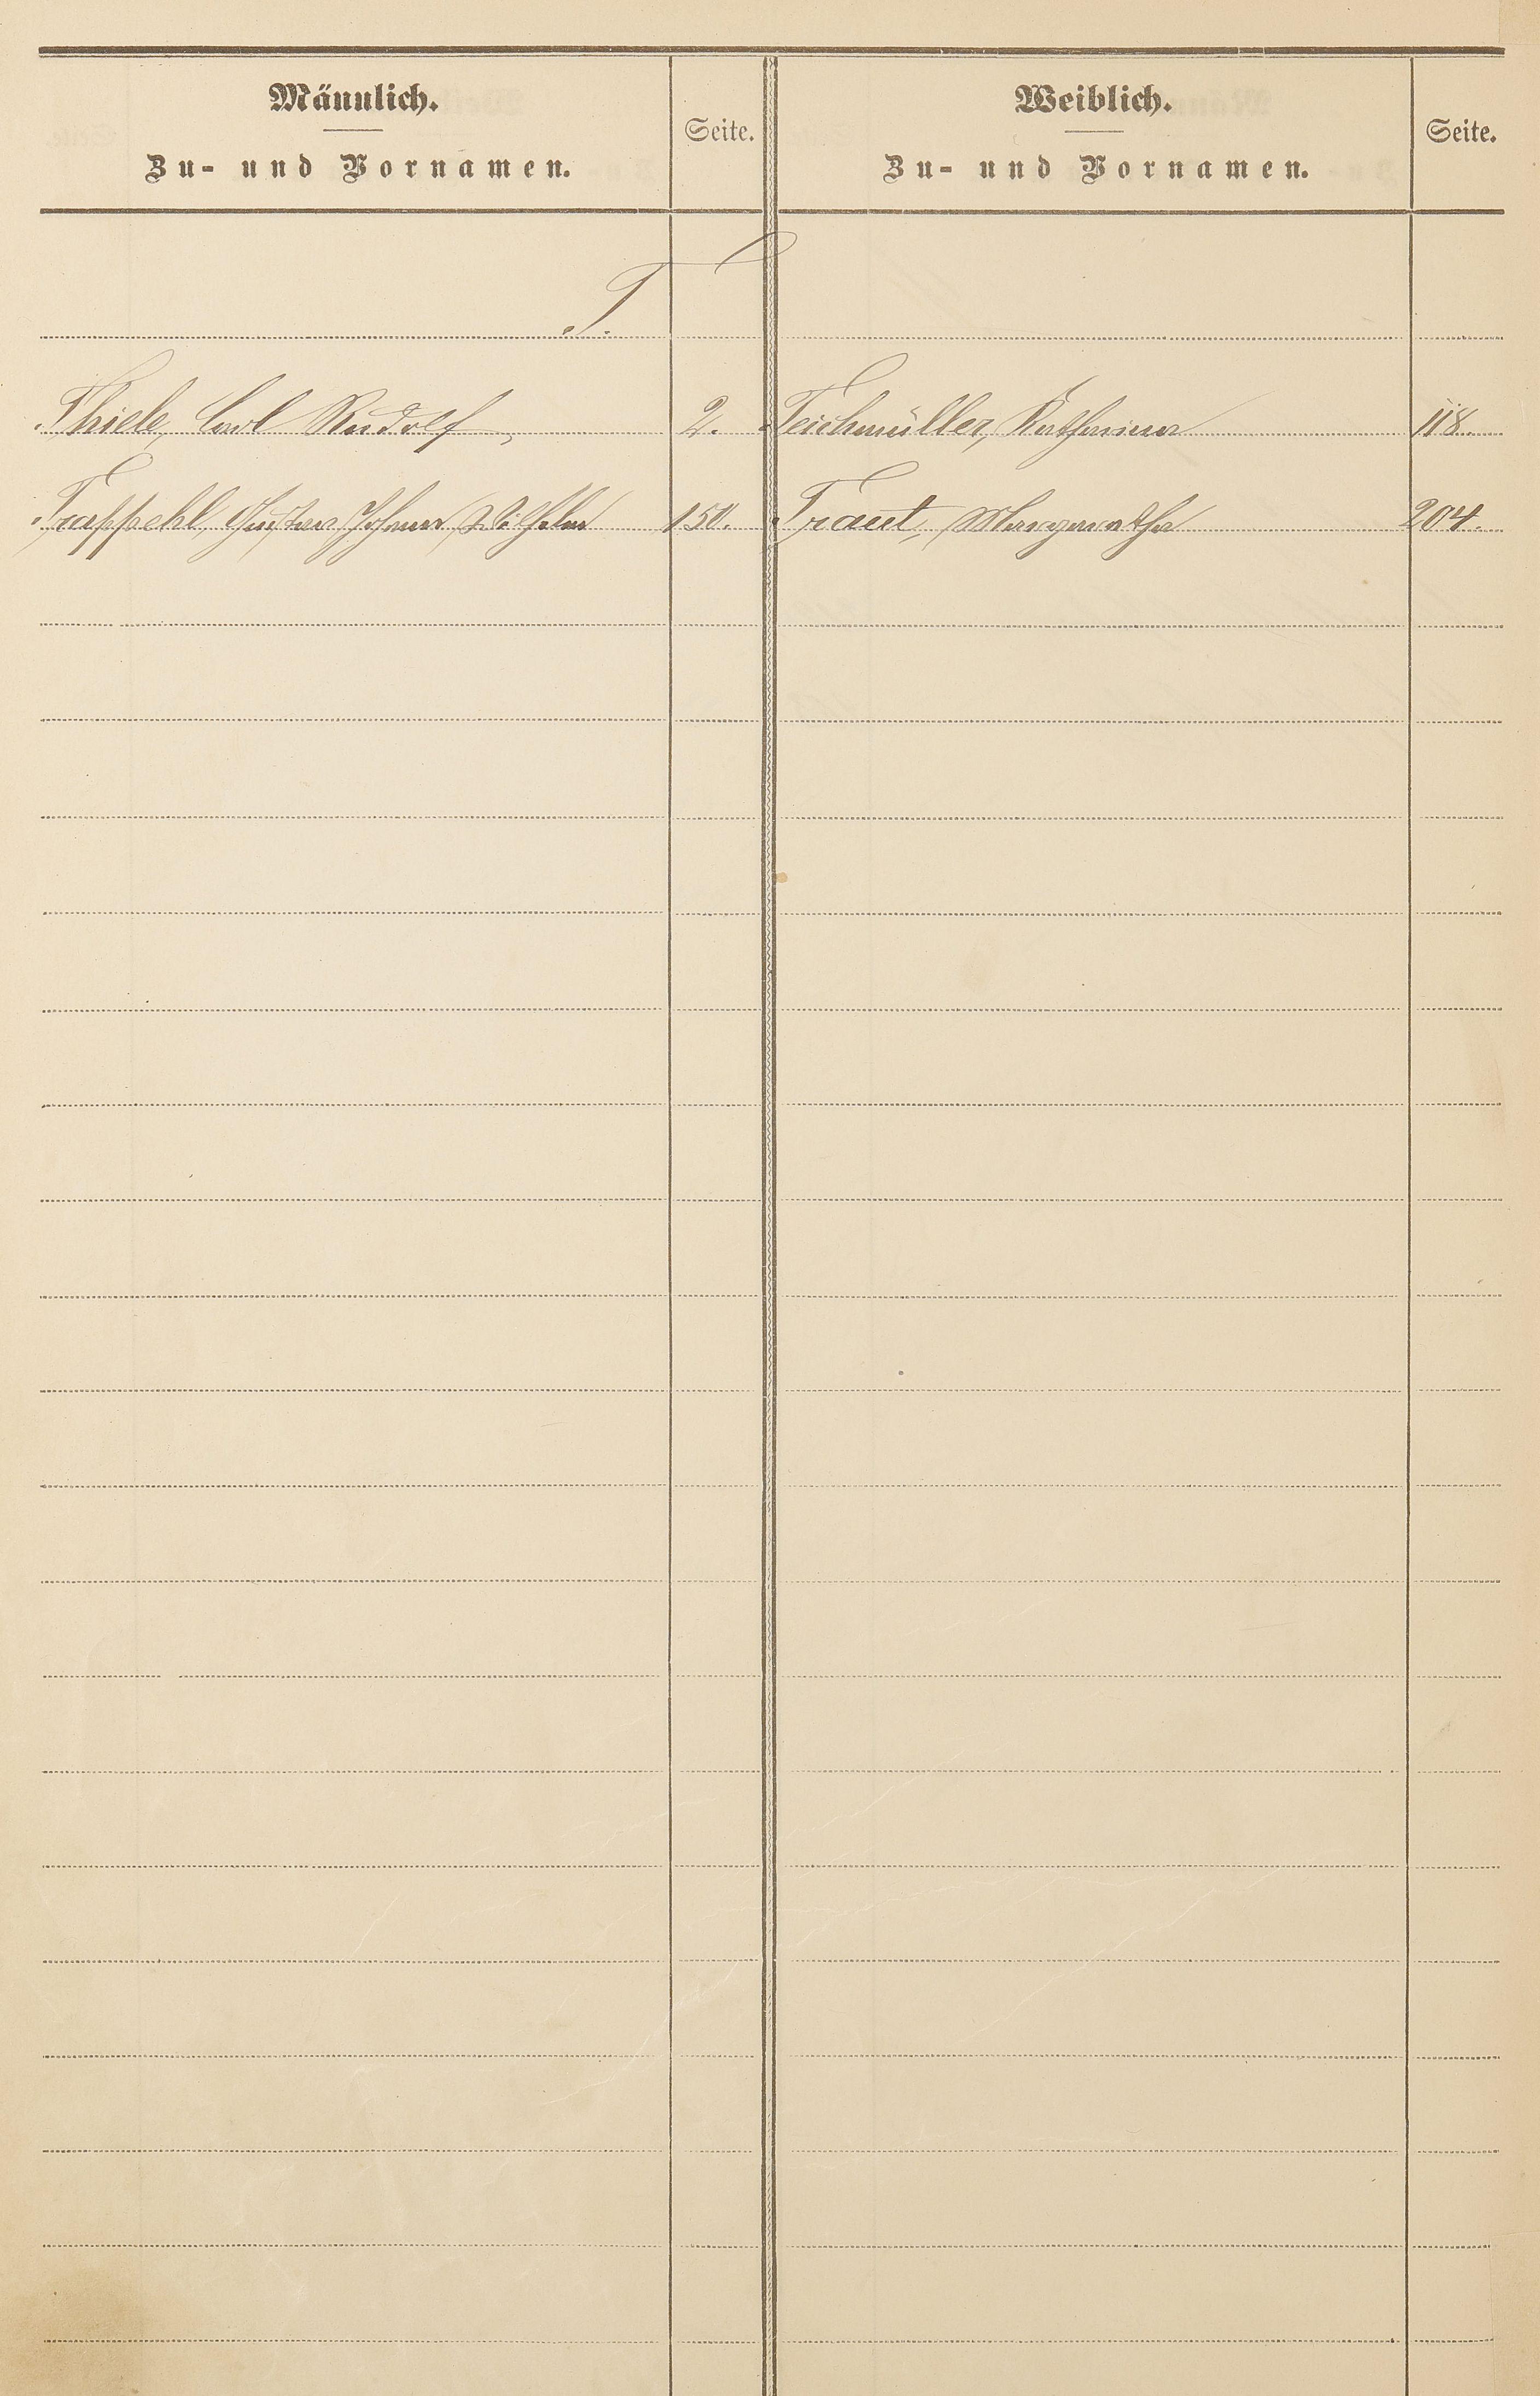 Männlich.
Zu- und Vornamen.
Seite.
Weiblich.
Zu- und Vornamen.
Seite.
T.
Thiele, Carl Rudolf, 2. Teichmüller, Katharina 118.
Trappehl, Gustav Johann Wilhelm 150. Traut, Margaretha 204.